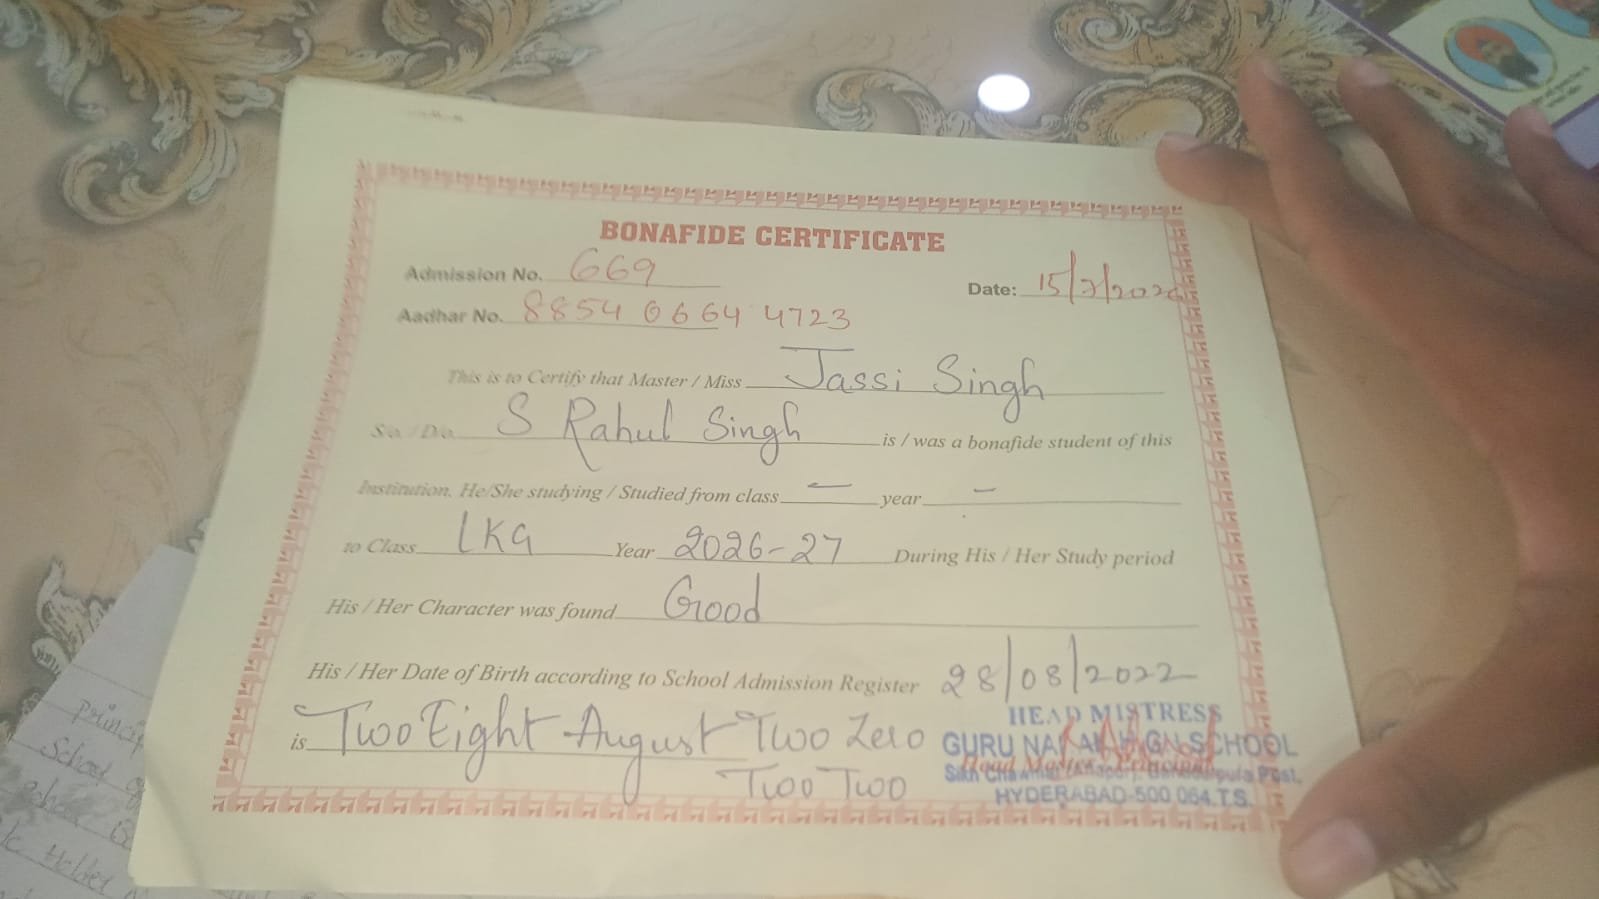 BONAFIDE CERTIFICATE
Admission No. 669
Date: 15/7/2026
Aadhar No. 8854 0664 4723
This is to Certify that Master / Miss Jassi Singh
S/o. / D/o. S Rahul Singh is / was a bonafide student of this
Institution. He/She studying / Studied from class — year –
to Class LKG Year 2026-27 During His / Her Study period
His / Her Character was found Good
His / Her Date of Birth according to School Admission Register 28/08/2022
is Two Eight August Two Zero
Two Two
HEAD MISTRESS
GURU NANAK SCHOOL
Sikh Post.
HYDERABAD-500 064.T.S.
School